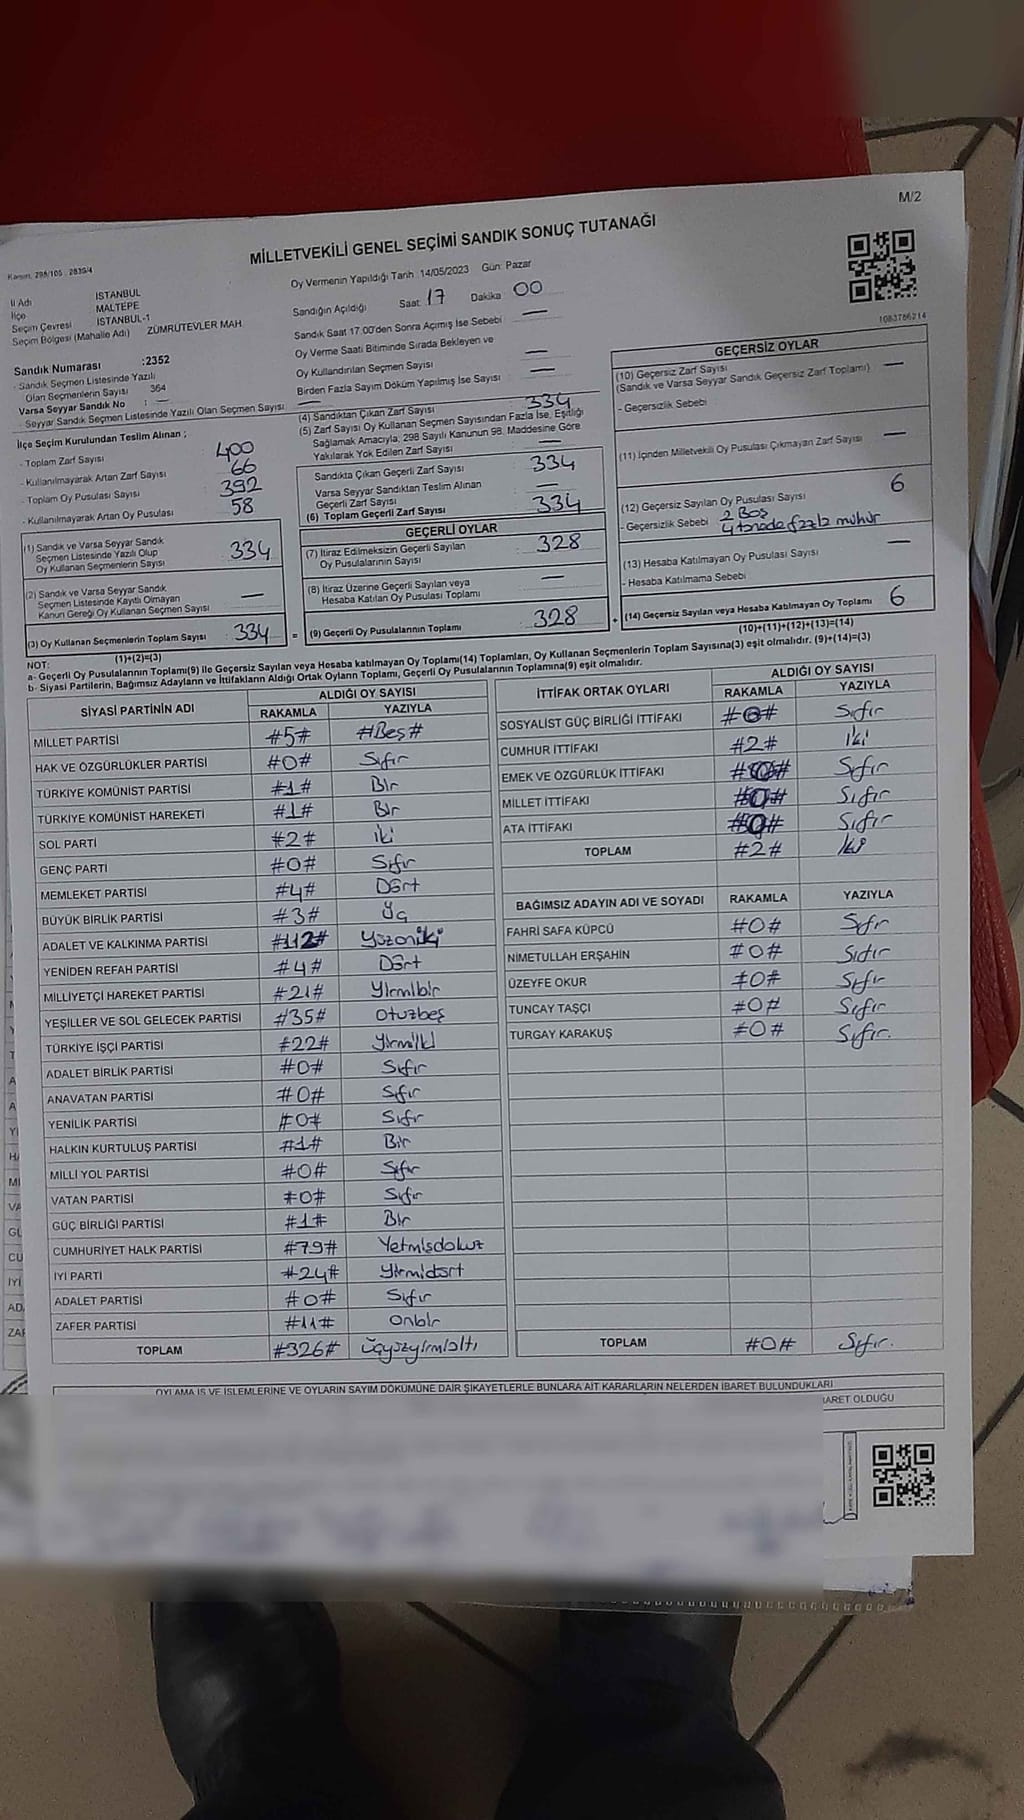 M/2
MİLLETVEKİLİ GENEL SEÇİMİ SANDIK SONUÇ TUTANAĞI
Kanun: 298/105 - 2839/4
İl Adı İSTANBUL
İlçe MALTEPE
Seçim Çevresi İSTANBUL-1
Seçim Bölgesi (Mahalle Adı) ZÜMRÜTEVLER MAH
Sandık Numarası :2352
- Sandık Seçmen Listesinde Yazılı
Olan Seçmenlerin Sayısı 364
Varsa Seyyar Sandık No : —
- Seyyar Sandık Seçmen Listesinde Yazılı Olan Seçmen Sayısı: —
Oy Vermenin Yapıldığı Tarih 14/05/2023 Gün: Pazar
Sandığın Açıldığı Saat 17 Dakika 00
Sandık Saat 17:00'den Sonra Açımış İse Sebebi —
Oy Verme Saati Bitiminde Sırada Bekleyen ve
Oy Kullandırılan Seçmen Sayısı —
Birden Fazla Sayım Döküm Yapılmış İse Sayısı —
İlçe Seçim Kurulundan Teslim Alınan ;
- Toplam Zarf Sayısı 400
- Kullanılmayarak Artan Zarf Sayısı 66
- Toplam Oy Pusulası Sayısı 392
- Kullanılmayarak Artan Oy Pusulası 58
(1) Sandık ve Varsa Seyyar Sandık
Seçmen Listesinde Yazılı Olup
Oy Kullanan Seçmenlerin Sayısı 334
(2) Sandık ve Varsa Seyyar Sandık
Seçmen Listesinde Kayıtlı Olmayan
Kanun Gereği Oy Kullanan Seçmen Sayısı —
(3) Oy Kullanan Seçmenlerin Toplam Sayısı : 334
(1)+(2)=(3)
(4) Sandıktan Çıkan Zarf Sayısı 334
(5) Zarf Sayısı Oy Kullanan Seçmen Sayısından Fazla İse, Eşitliği
Sağlamak Amacıyla, 298 Sayılı Kanunun 98. Maddesine Göre
Yakılarak Yok Edilen Zarf Sayısı —
Sandıkta Çıkan Geçerli Zarf Sayısı 334
Varsa Seyyar Sandıktan Teslim Alınan
Geçerli Zarf Sayısı —
(6) Toplam Geçerli Zarf Sayısı 334
GEÇERLİ OYLAR
(7) İtiraz Edilmeksizin Geçerli Sayılan
Oy Pusulalarının Sayısı 328
(8) İtiraz Üzerine Geçerli Sayılan veya
Hesaba Katılan Oy Pusulası Toplamı —
= (9) Geçerli Oy Pusulalarının Toplamı 328
1083786214
GEÇERSİZ OYLAR
(10) Geçersiz Zarf Sayısı
(Sandık ve Varsa Seyyar Sandık Geçersiz Zarf Toplamı) —
- Geçersizlik Sebebi
(11) İçinden Milletvekili Oy Pusulası Çıkmayan Zarf Sayısı —
(12) Geçersiz Sayılan Oy Pusulası Sayısı 6
- Geçersizlik Sebebi 2 Boş
4 tanede fazla mühür
(13) Hesaba Katılmayan Oy Pusulası Sayısı —
- Hesaba Katılmama Sebebi
+ (14) Geçersiz Sayılan veya Hesaba Katılmayan Oy Toplamı 6
(10)+(11)+(12)+(13)=(14)
NOT:
a- Geçerli Oy Pusulaları Toplamı(9) ile Geçersiz Sayılan veya Hesaba katılmayan Oy Toplamı(14) Toplamları, Oy Kullanan Seçmenlerin Toplam Sayısına(3) eşit olmalıdır. (9)+(14)=(3)
b- Siyasi Partilerin, Bağımsız Adayların ve İttifakların Aldığı Ortak Oyların Toplamı, Geçerli Oy Pusulalarının Toplamına(9) eşit olmalıdır.
SİYASİ PARTİNİN ADI ALDIĞI OY SAYISI
RAKAMLA YAZIYLA
MİLLET PARTİSİ #5# #Beş#
HAK VE ÖZGÜRLÜKLER PARTİSİ #0# Sıfır
TÜRKİYE KOMÜNİST PARTİSİ #1# Bir
TÜRKİYE KOMÜNİST HAREKETİ #1# Bir
SOL PARTİ #2# iki
GENÇ PARTİ #0# Sıfır
MEMLEKET PARTİSİ #4# Dört
BÜYÜK BİRLİK PARTİSİ #3# Üç
ADALET VE KALKINMA PARTİSİ #112# Yüzoniki
YENİDEN REFAH PARTİSİ #4# Dört
MİLLİYETÇİ HAREKET PARTİSİ #21# Yirmibir
YEŞİLLER VE SOL GELECEK PARTİSİ #35# Otuzbeş
TÜRKİYE İŞÇİ PARTİSİ #22# Yirmiiki
ADALET BİRLİK PARTİSİ #0# Sıfır
ANAVATAN PARTİSİ #0# Sıfır
YENİLİK PARTİSİ #0# Sıfır
HALKIN KURTULUŞ PARTİSİ #1# Bir
MİLLİ YOL PARTİSİ #0# Sıfır
VATAN PARTİSİ #0# Sıfır
GÜÇ BİRLİĞİ PARTİSİ #1# Bir
CUMHURİYET HALK PARTİSİ #79# Yetmişdokuz
İYİ PARTİ #24# Yirmidört
ADALET PARTİSİ #0# Sıfır
ZAFER PARTİSİ #11# Onbir
TOPLAM #326# Üçyüzyirmialtı
İTTİFAK ORTAK OYLARI ALDIĞI OY SAYISI
RAKAMLA YAZIYLA
SOSYALİST GÜÇ BİRLİĞİ İTTİFAKI #0# Sıfır
CUMHUR İTTİFAKI #2# İki
EMEK VE ÖZGÜRLÜK İTTİFAKI #0# Sıfır
MİLLET İTTİFAKI #0# Sıfır
ATA İTTİFAKI #0# Sıfır
TOPLAM #2# İki
BAĞIMSIZ ADAYIN ADI VE SOYADI RAKAMLA YAZIYLA
FAHRİ SAFA KÜPCÜ #0# Sıfır
NİMETULLAH ERŞAHİN #0# Sıfır
ÜZEYFE OKUR #0# Sıfır
TUNCAY TAŞÇI #0# Sıfır
TURGAY KARAKUŞ #0# Sıfır.
TOPLAM #0# Sıfır.
OYLAMA İŞ VE İŞLEMLERİNE VE OYLARIN SAYIM DÖKÜMÜNE DAİR ŞİKAYETLERLE BUNLARA AİT KARARLARIN NELERDEN İBARET BULUNDUKLARI
OLDUĞU